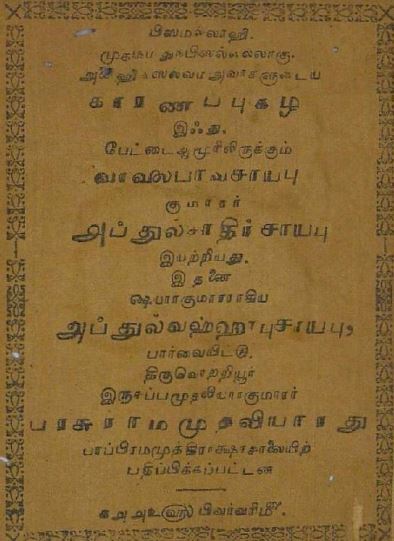 பிஸ்மில்லாஹி.
முகம்மது
அலைஹிஸ்ஸலவம் அவர்களுடைய
காரணப்புகழ்
இஃது,
பேட்டைஆமூரிலிருக்கும்
வாவுஸபாவசாயபு
குமாரர்
அப்துல்காதிர்சாயபு
இயற்றியது.
இதனை
ஷையாரகுமாரராகிய
அப்துல்வஹ்ஹாபுசாயபு
பார்வையிட்டு.
திருவொற்றியூர்
இருசப்பமுதலியார்குமாரர்
பரசுராமமுதலியாரது
பாப்பிரமமுத்திராக்ஷரசாலையிற்
பதிப்பிக்கப்பட்டன
௧௮௮௨௵ பிவர்வரிமீ.